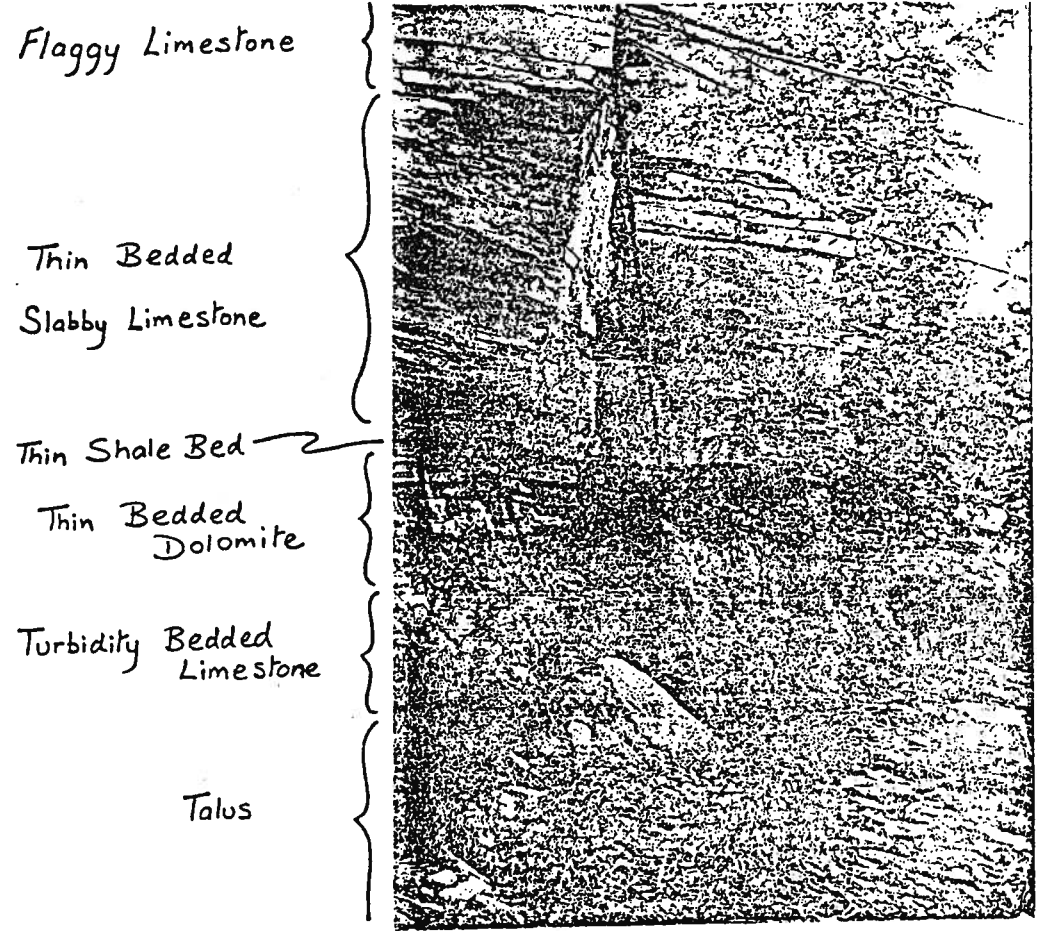 Flaggy Limestone
Thin Bedded
Slabby Limestone
Thin Shale Bed
Thin Bedded
Dolomite
Turbidity Bedded
Limestone
Talus